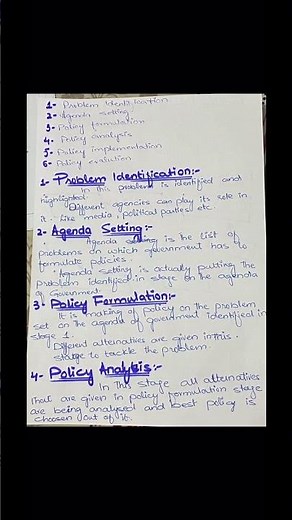 1- Problem Identification
2- Agenda setting
3- Policy formulation
4- Policy analysis
5- Policy implementation
6- Policy evalution
1- Problem Identification:-
In this problem is identified and
highlighted.
Different agencies can play its role in
it. Like media, political parties etc
2- Agenda Setting:-
Agenda setting is the list of
problems on which government has to
formulate policies.
Agenda setting is actually putting the
problem identified in stage on the agenda
of Government.
3- Policy Formulation:-
It is making of policy on the problem
set on the agenda of government identified in
stage 1
Different alternatives are given in this
stage to tackle the problem.
4- Policy Analysis:-
In this stage all alternatives
that are given in policy formulation stage
are being analysed and best policy is
choosen out of it.